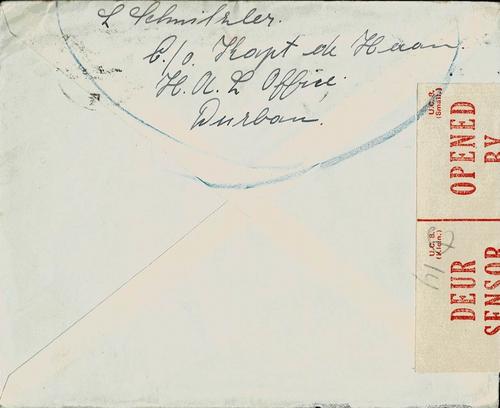 L Schnitzler.
C/o. Kapt de Haan.
H.A.L Office.
Durban.
U.C. 8.
(Small.)
OPENED
BY
U.C. 8.
(Klein.)
DEUR
SENSOR